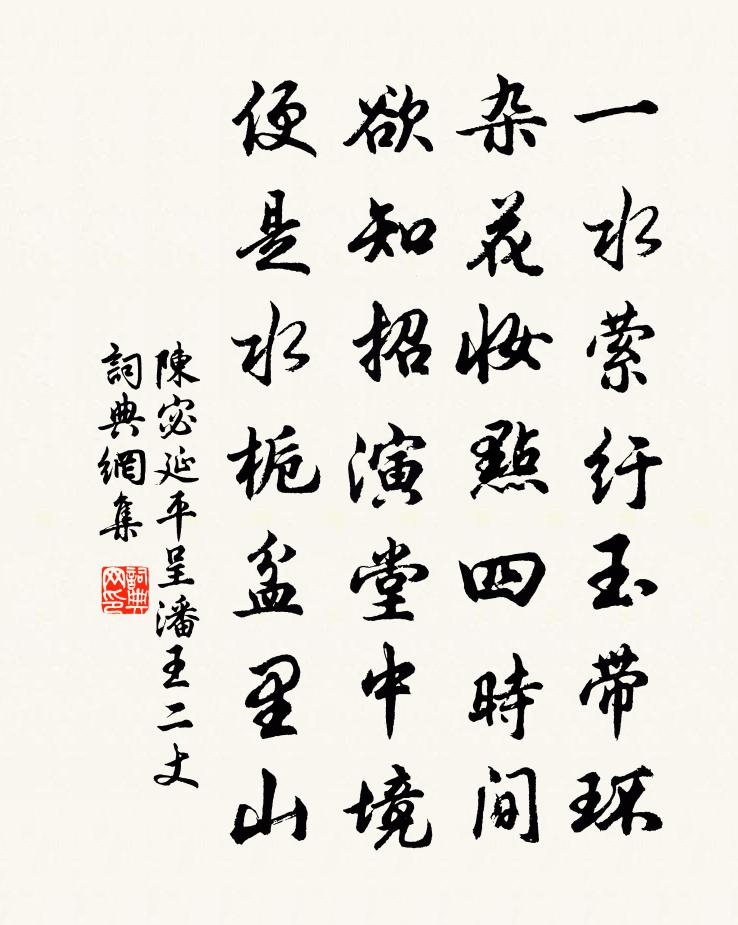 一水萦纡玉带环
杂花妆點四時间
欲知招演堂中境
便是水栀盆里山
陳宓延平呈潘王二丈
詞典網集
詞典网印